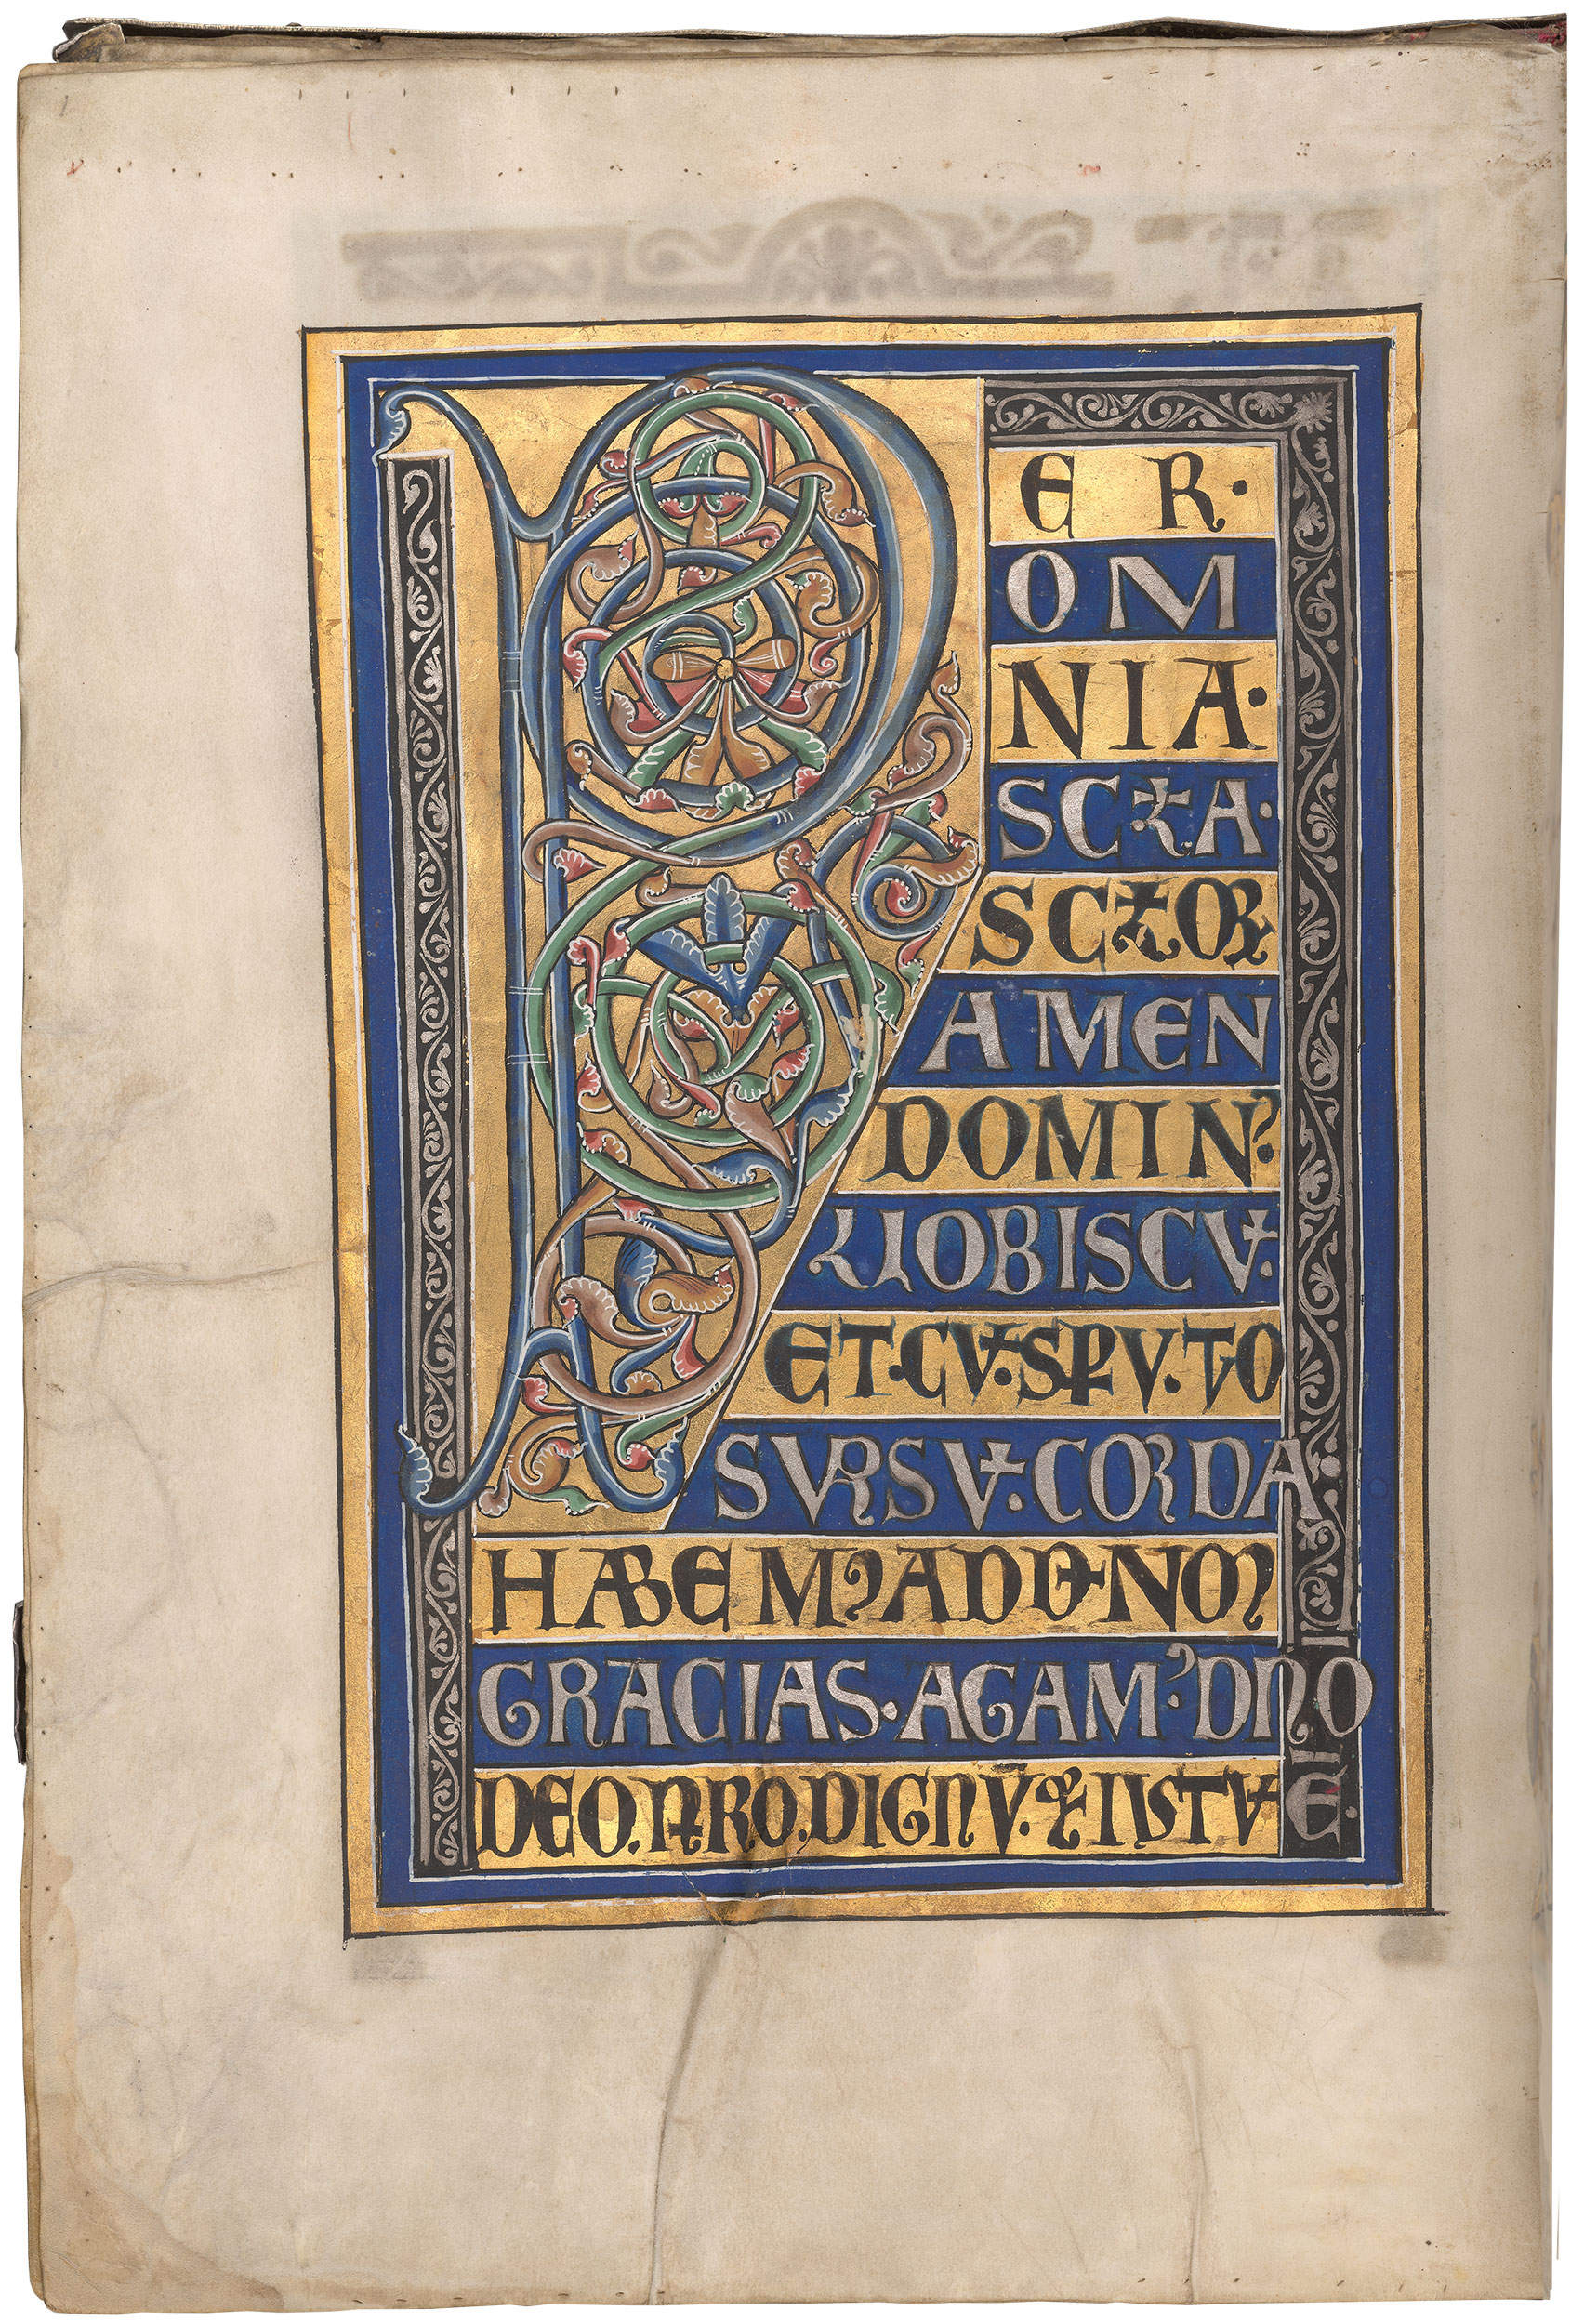 P
ER·
OM
NIA·
SCLA·
SCLOR
AMEN
DOMIN?
UOBISCU
ET·CU·SPU·TO
SURSU·CORDA
HABEM?AD DNO?
GRACIAS·AGAM?DNO
DEO·NRO·DIGNU·&IUSTU
E·